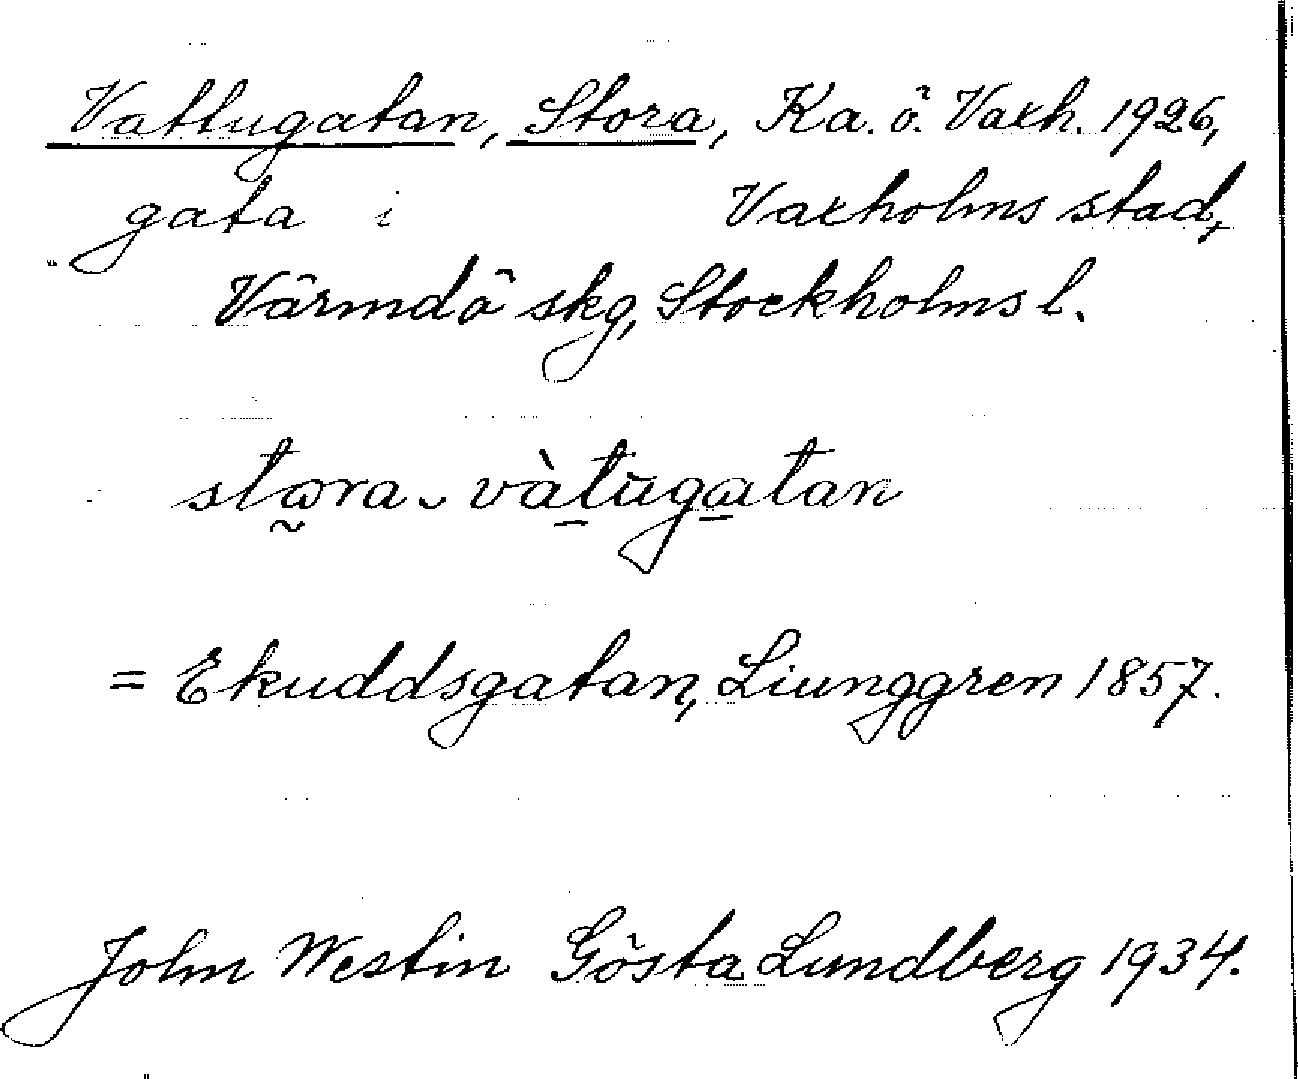 Vattugatan, Stora, Ka. ö. Vaxh. 1926,
gata i Vaxholms stad,
Värmdö skg, Stockholms l.
stωra ᴗ vàtŭgatan
= Ekuddsgatan, Liunggren 1857.
John Westin Gösta Lundberg 1934.